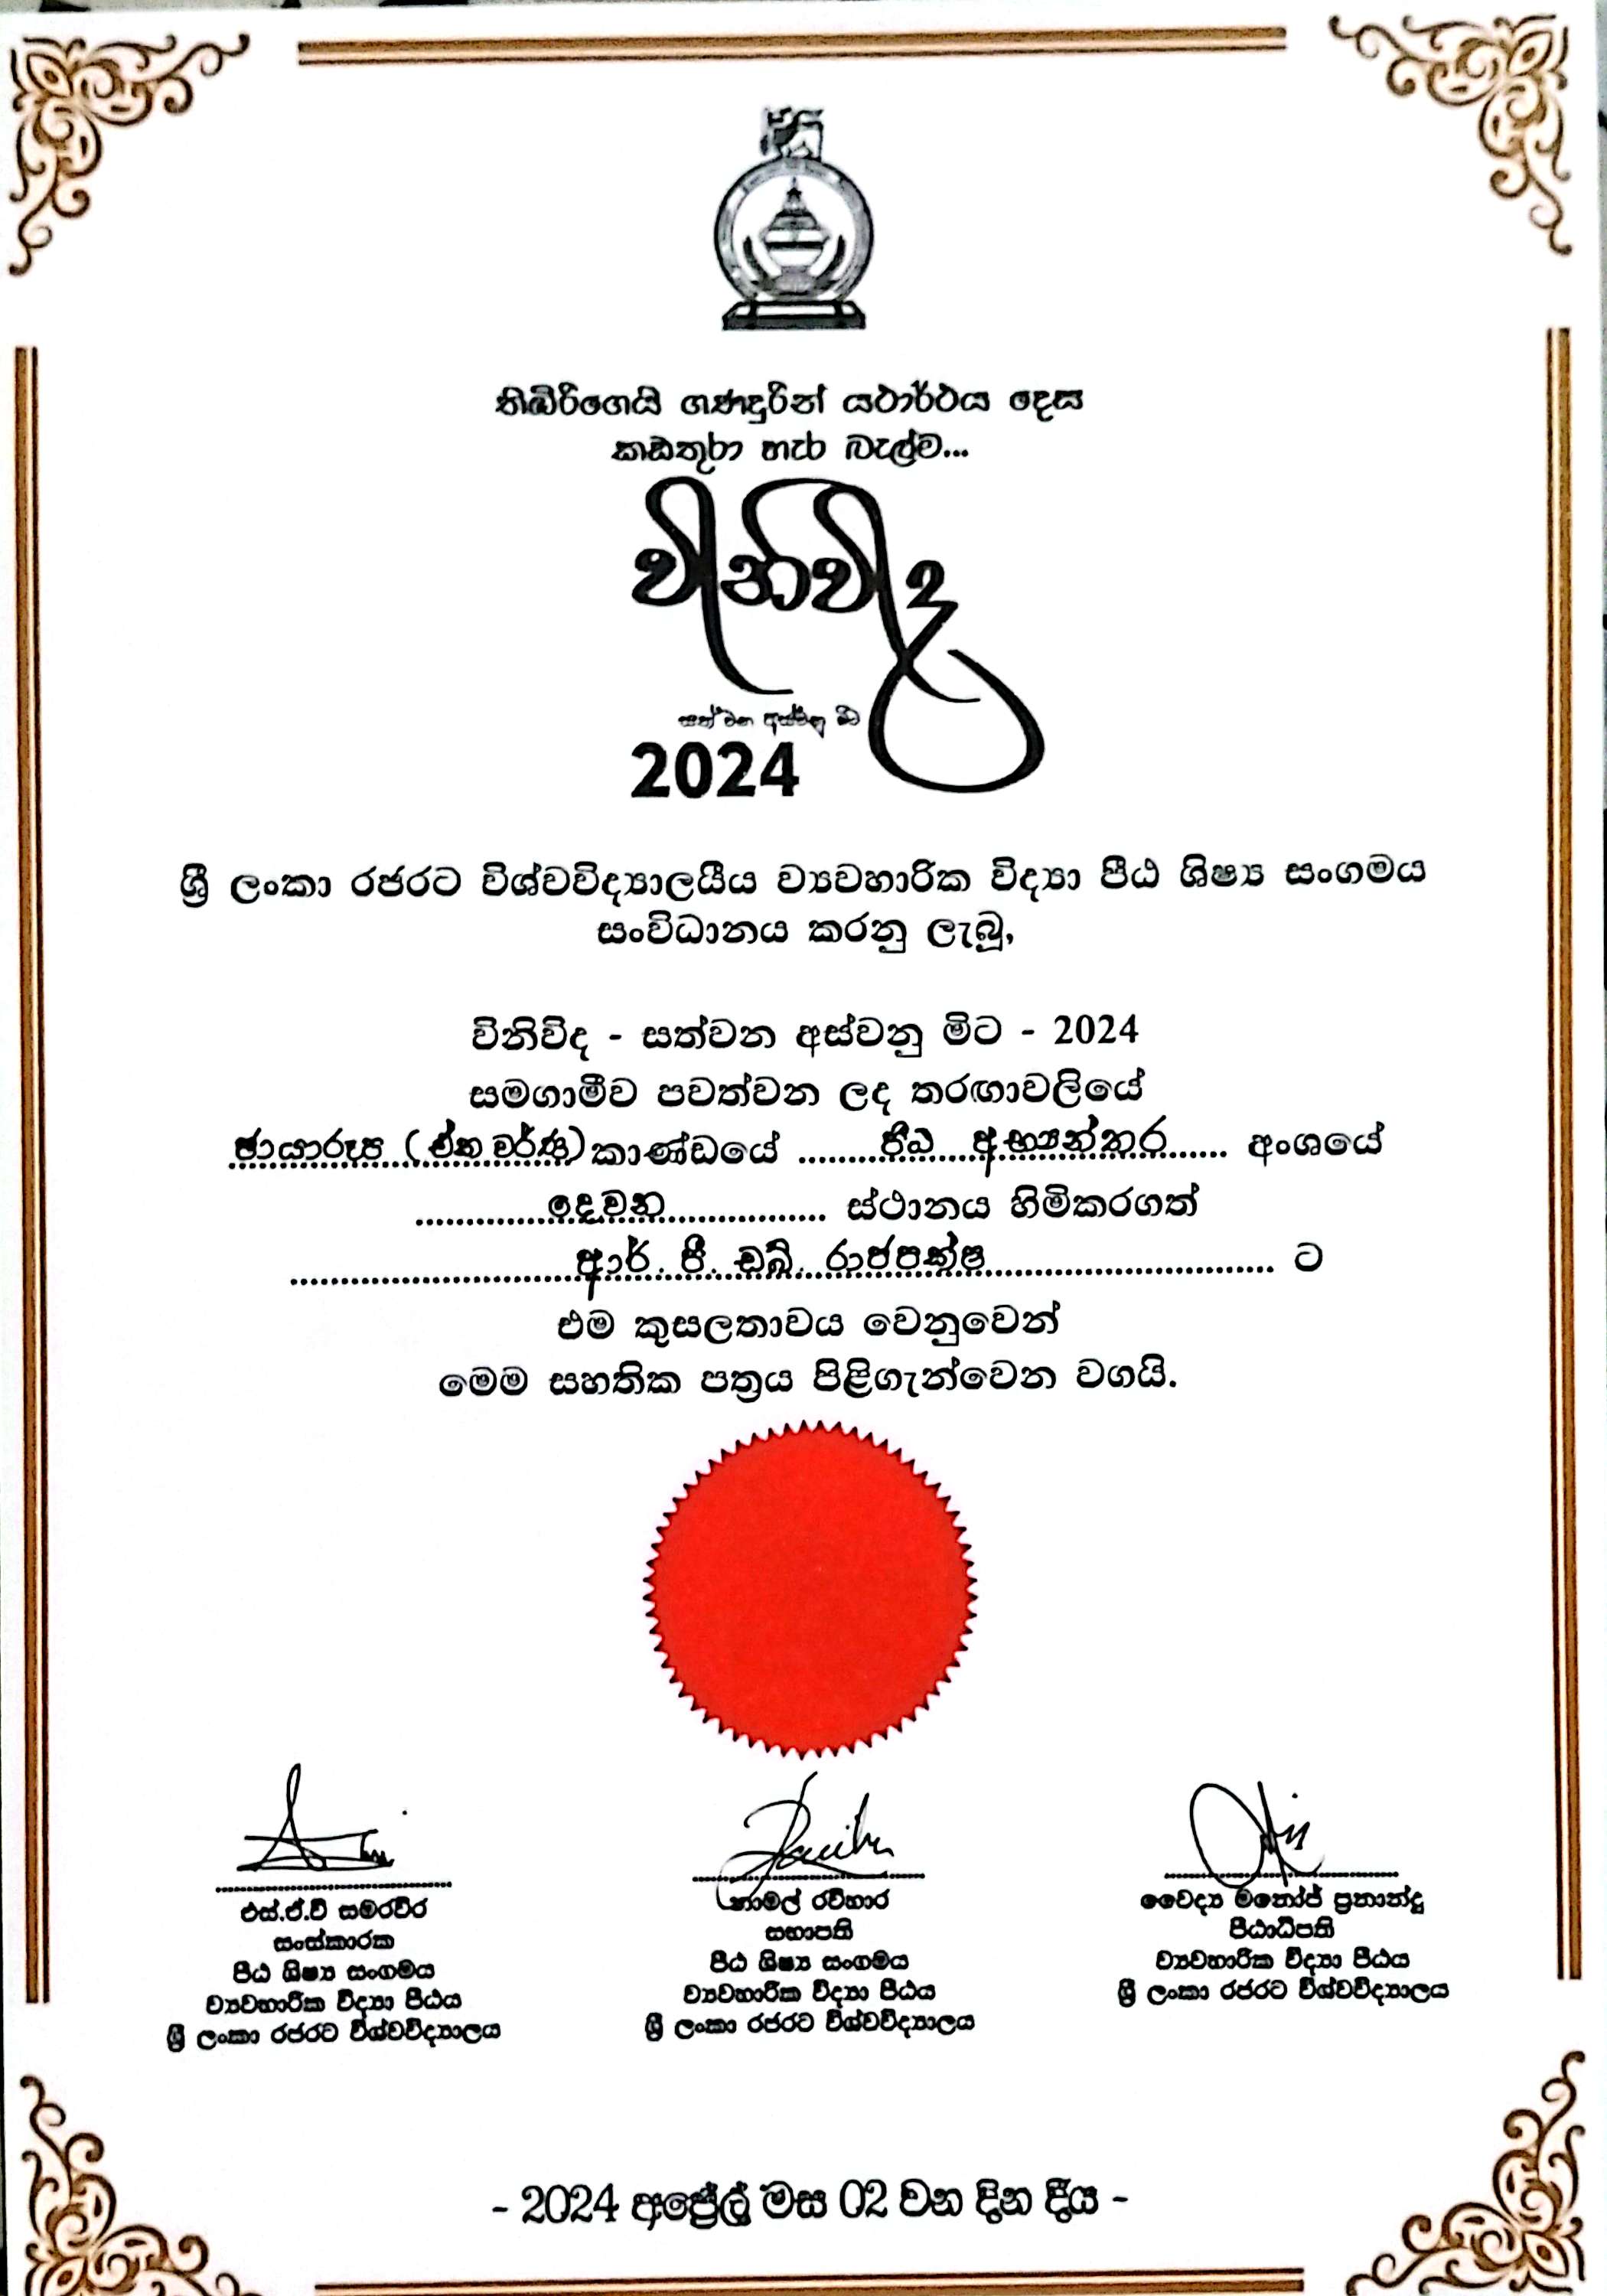 තිඹිරිගෙයි ගණදුරින් යථාර්ථය දෙස
කඩතුරා හැර බැල්ම...
විනිවිද
සත්වන අස්වනු මිට
2024
ශ්‍රී ලංකා රජරට විශ්වවිද්‍යාලයීය ව්‍යවහාරික විද්‍යා පීඨ ශිෂ්‍ය සංගමය
සංවිධානය කරනු ලැබූ,
විනිවිද - සත්වන අස්වනු මිට - 2024
සමගාමීව පවත්වන ලද තරඟාවලියේ
ඡායාරූප (ඒක වර්ණ) කාණ්ඩයේ පීඨ අභ්‍යන්තර අංශයේ
දෙවන ස්ථානය හිමිකරගත්
ආර්. පී. ඩබ්. රාජපක්ෂ ට
එම කුසලතාවය වෙනුවෙන්
මෙම සහතික පත්‍රය පිළිගැන්වෙන වගයි.
එස්.ඒ.වී සමරවීර
සංස්කාරක
පීඨ ශිෂ්‍ය සංගමය
ව්‍යවහාරික විද්‍යා පීඨය
ශ්‍රී ලංකා රජරට විශ්වවිද්‍යාලය
නාමල් රවිහාර
සභාපති
පීඨ ශිෂ්‍ය සංගමය
ව්‍යවහාරික විද්‍යා පීඨය
ශ්‍රී ලංකා රජරට විශ්වවිද්‍යාලය
වෛද්‍ය මනෝජ් ප්‍රනාන්දු
පීඨාධිපති
ව්‍යවහාරික විද්‍යා පීඨය
ශ්‍රී ලංකා රජරට විශ්වවිද්‍යාලය
- 2024 අප්‍රේල් මස 02 වන දින දීය -